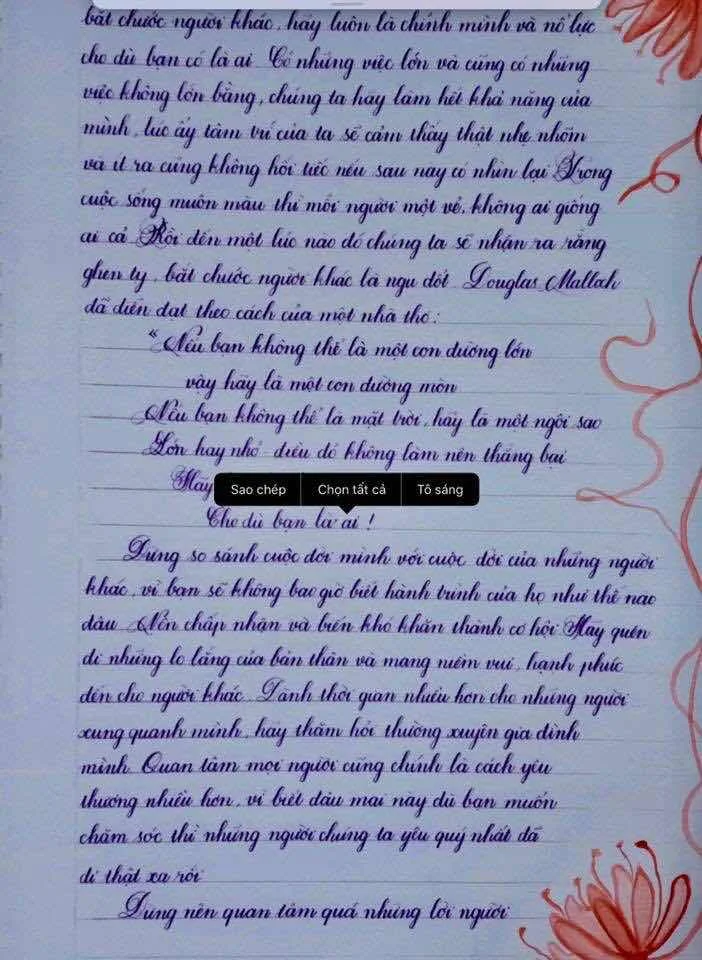 bắt chước người khác, hãy luôn là chính mình và nỗ lực
cho dù bạn có là ai. Có những việc lớn và cũng có những
việc không lớn bằng, chúng ta hãy làm hết khả năng của
mình, lúc ấy tâm trí của ta sẽ cảm thấy thật nhẹ nhõm
và ít ra cũng không hối tiếc nếu sau này có nhìn lại. Trong
cuộc sống muôn màu thì mỗi người một vẻ, không ai giống
ai cả. Rồi đến một lúc nào đó chúng ta sẽ nhận ra rằng
ghen tỵ, bắt chước người khác là ngu dốt. Douglas Mallah
đã diễn đạt theo cách của một nhà thơ:
"Nếu bạn không thể là một con đường lớn
vậy hãy là một con đường mòn
Nếu bạn không thể là mặt trời, hãy là một ngôi sao
Lớn hay nhỏ điều đó không làm nên thắng bại
Hãy
Sao chép Chọn tất cả Tô sáng
Cho dù bạn là ai!
Đừng so sánh cuộc đời mình với cuộc đời của những người
khác, vì bạn sẽ không bao giờ biết hành trình của họ như thế nào
đâu. Nên chấp nhận và biến khó khăn thành cơ hội. Hãy quên
đi những lo lắng của bản thân và mang niềm vui, hạnh phúc
đến cho người khác. Dành thời gian nhiều hơn cho những người
xung quanh mình, hãy thăm hỏi thường xuyên gia đình
mình. Quan tâm mọi người cũng chính là cách yêu
thương nhiều hơn, vì biết đâu mai này dù bạn muốn
chăm sóc thì những người chúng ta yêu quý nhất đã
đi thật xa rồi
Đừng nên quan tâm quá những lời người